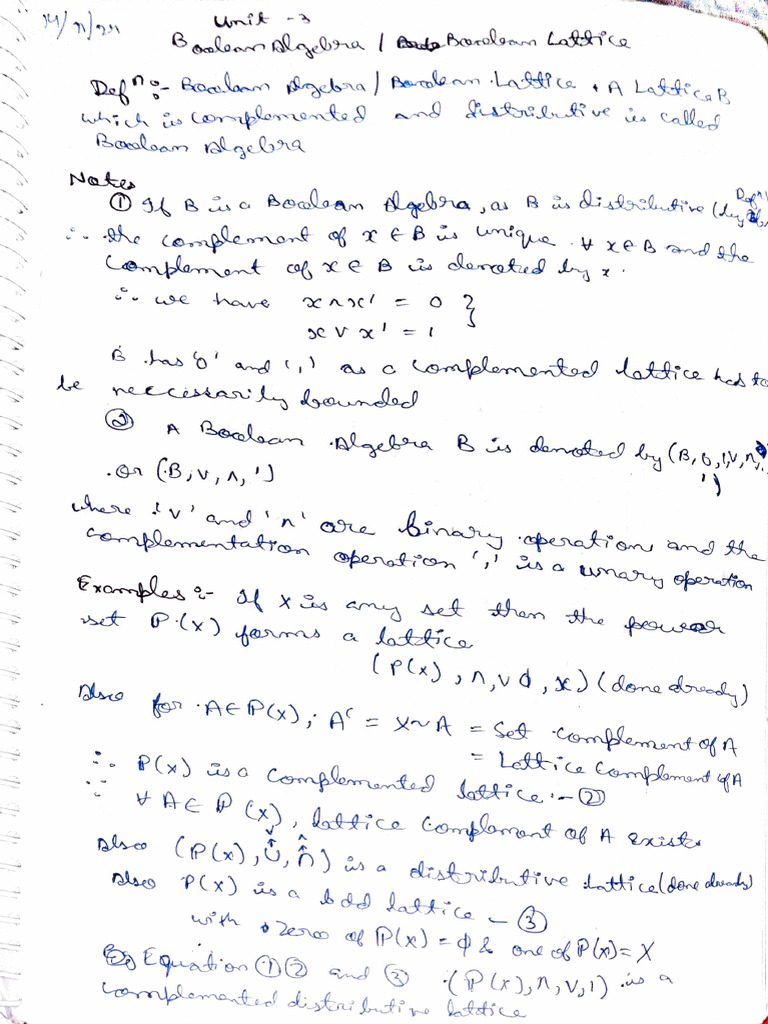 Unit - 3
Boolean Algebra / Boolean Lattice
Defⁿ :- Boolean Algebra / Boolean Lattice . A Lattice B
which is complemented and distributive is called
Boolean Algebra
Notes
① If B is a Boolean Algebra, as B is distributive (by
∴ the complement of x ∈ B is unique ∀ x ∈ B and the
complement of x ∈ B is denoted by x
∴ we have x ∧ x' = 0 }
x ∨ x' = 1
B has '0' and '1' as a complemented lattice has to
be neccessarily bounded
② A Boolean Algebra B is denoted by (B, 0, 1, ∨, ∧,
')
or (B, ∨, ∧, ')
where '∨' and '∧' are binary operation, and the
complementation operation ''' is a unary operation
Examples :- If X is any set then the power
set P(X) forms a lattice
(P(X), ∧, ∨ ϕ, X) (done already)
Also for A ∈ P(X), Aᶜ = X ~ A = Set complement of A
= Lattice Complement of A
∴ P(X) is a complemented lattice - ②
∵ ∀ A ∈ P(X), lattice complement of A exists
Also (P(X), ∪, ∩) is a distributive lattice (done already)
Also P(X) is a bdd lattice - ③
with zero of P(X) = ϕ & one of P(X) = X
Equation ① ② and ③ (P(X), ∧, ∨, ') is a
complemented distributive lattice